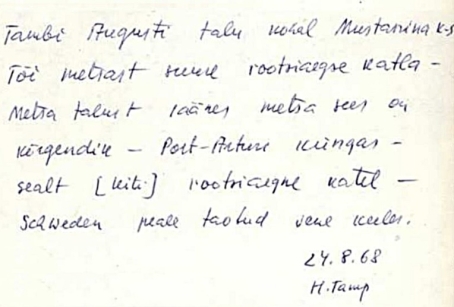 Tambi Augusti talu kohal Mustassina k-s
Tõi metsast suure rootsiaegse katla -
Metsa talust läänes metsa sees on
kõrgendik - Port-Arturi küngas -
sealt [kiti] rootsiaegne katel -
Schweden peale taotud vene keeles.
24.8.68
H. Tamp